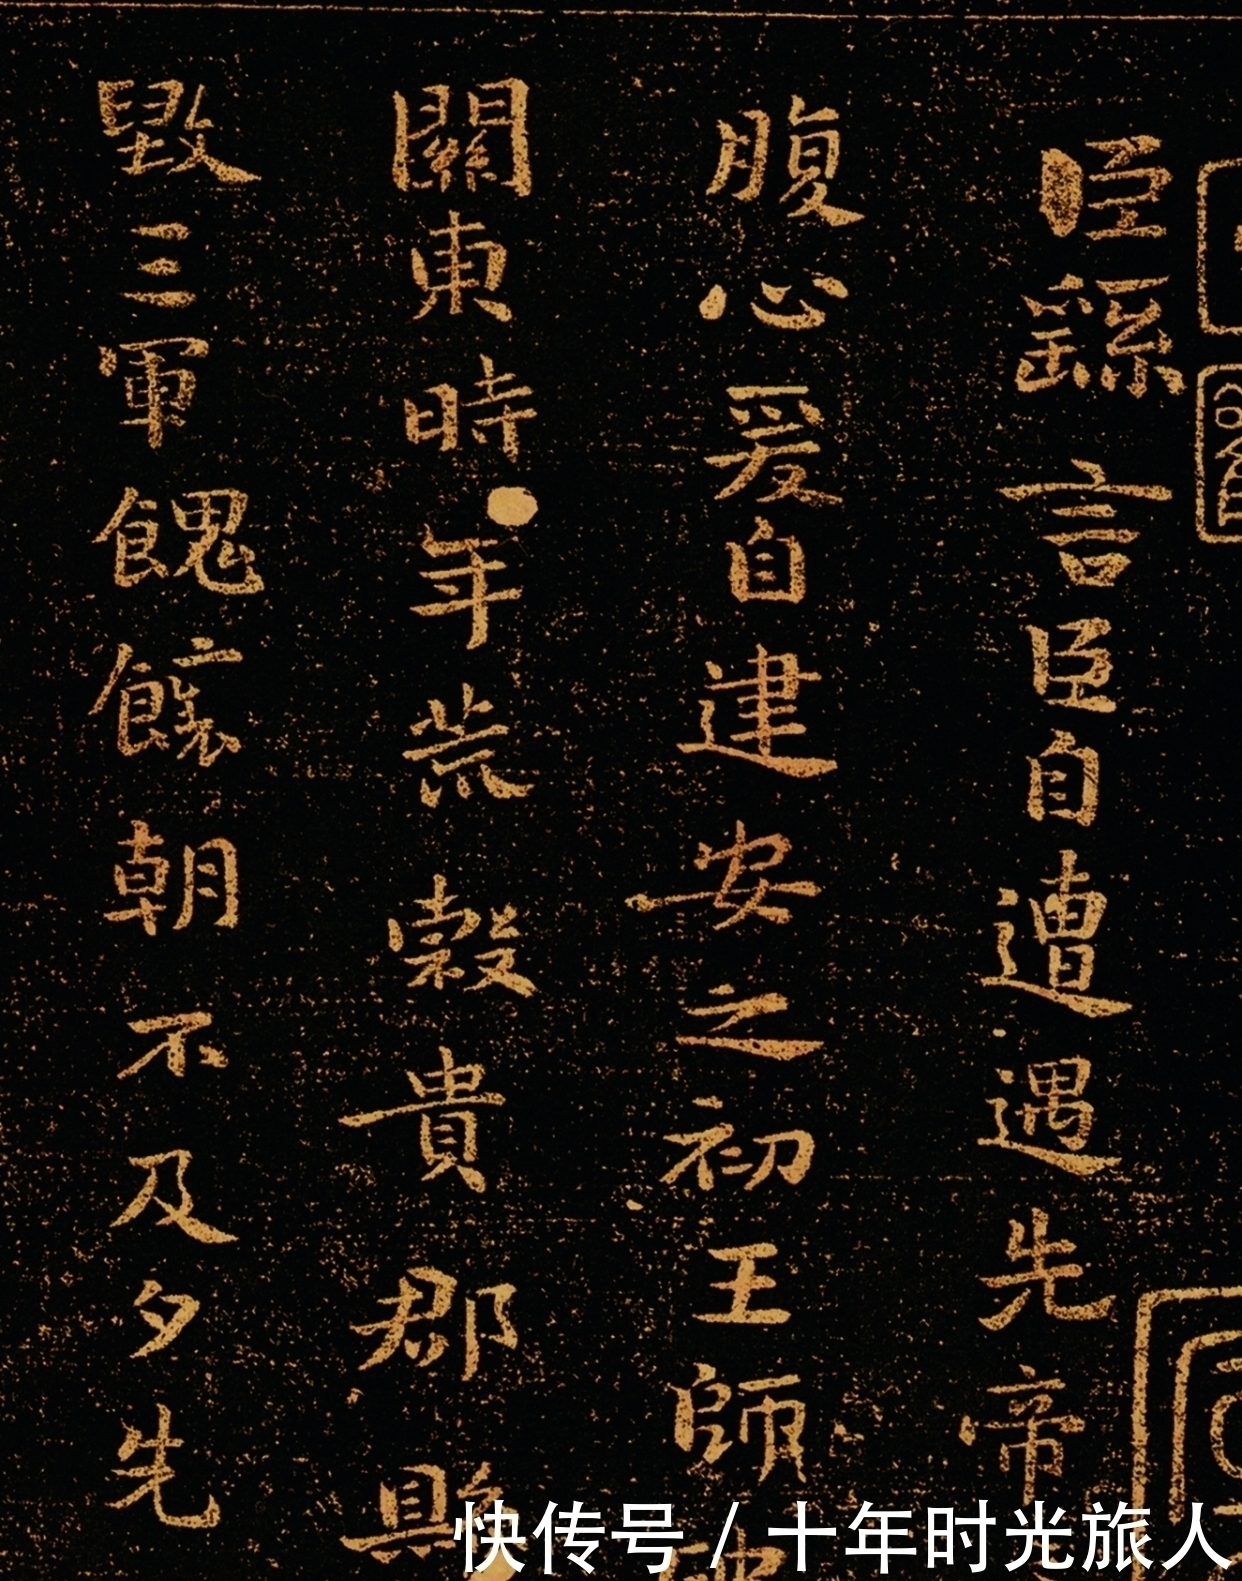 臣繇言臣自遭遇先帝
腹心爰自建安之初王師破
關東時年荒穀貴郡縣
毀三軍餽饟朝不及夕先
快传号/十年时光旅人